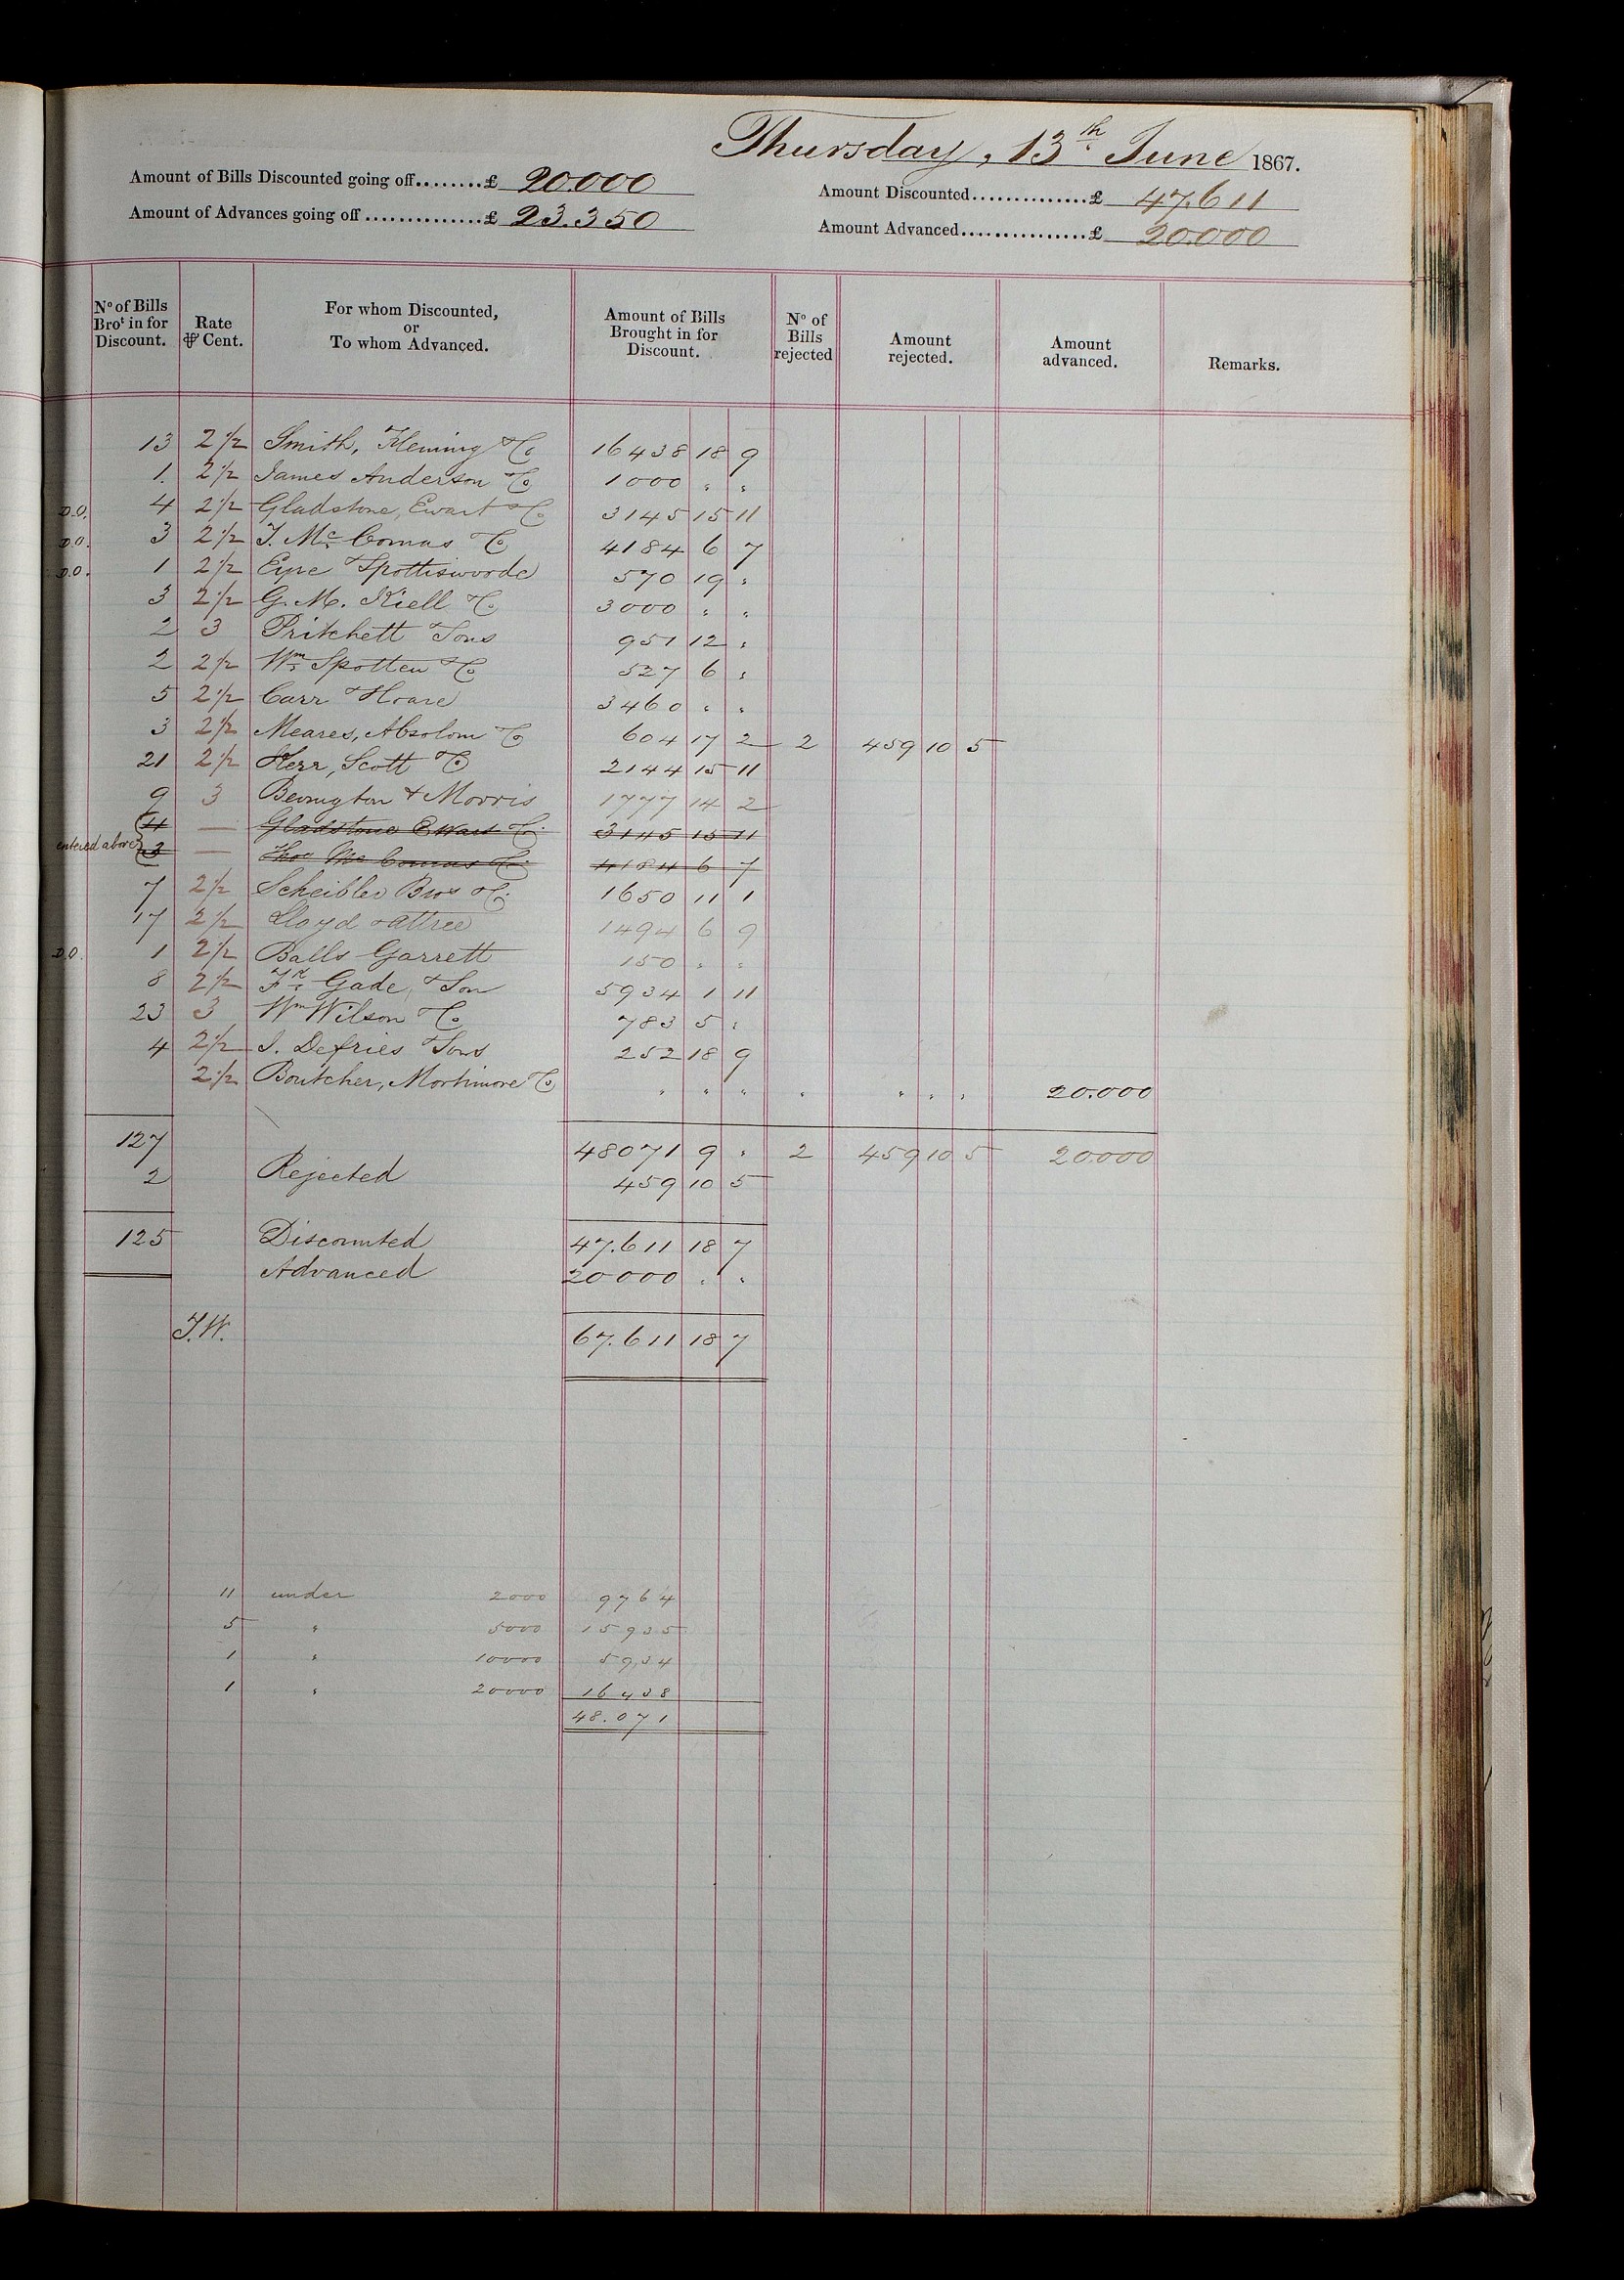 Thursday, 13th June 1867.
Amount of Bills Discounted going off........£ 20.000
Amount Discounted...............£ 47.611
Amount of Advances going off...............£ 23.350
Amount Advanced................£ 20.000
No of Bills Brot in for Discount. Rate ⅌ Cent. For whom Discounted, or To whom Advanced. Amount of Bills Brought in for Discount. No of Bills rejected Amount rejected. Amount advanced. Remarks.
13 2½ Smith, Fleming & Co 16438 18 9
1. 2½ James Anderson & Co 1000 " "
D.O. 4 2½ Gladstone, Ewart & Co 3145 15 11
D.O. 3 2½ T. Mc Comas & Co 4184 6 7
D.O. 1 2½ Eyre & Spottiswoode 570 19 "
3 2½ G. M. Kiell & Co 3000 " "
2 3 Pritchett & Sons 951 12 "
2 2½ Wm Spotten & Co 527 6 "
5 2½ Carr & Hoare 3460 " "
3 2½ Meares, Absolom & Co 604 17 2 2 459 10 5
21 2½ Kerr, Scott & Co 2144 15 11
9 3 Bevington & Morris 1777 14 2
4 — Gladstone Ewart & Co 3145 15 11
entered above 3 — Thos Mc Comas & Co 4184 6 7
7 2½ Scheibler Bros & Co 1650 11 1
17 2½ Lloyd & Attree 1494 6 9
D.O. 1 2½ Balls Garrett 150 " "
8 2½ Gade, & Son 5934 1 11
23 3 Wm Wilson & Co 783 5 "
4 2½ J. Defries & Sons 252 18 9
2½ Boutcher, Mortimore & Co " " " " " " " 20.000
127 48071 9 " 2 459 10 5 20000
2 Rejected 459 10 5
125 Discounted 47.611 18 7
Advanced 20000 " "
T.W. 67.611 18 7
11 under 2000 9764
5 " 5000 15935
1 " 10000 5934
1 " 20000 16438
48.071